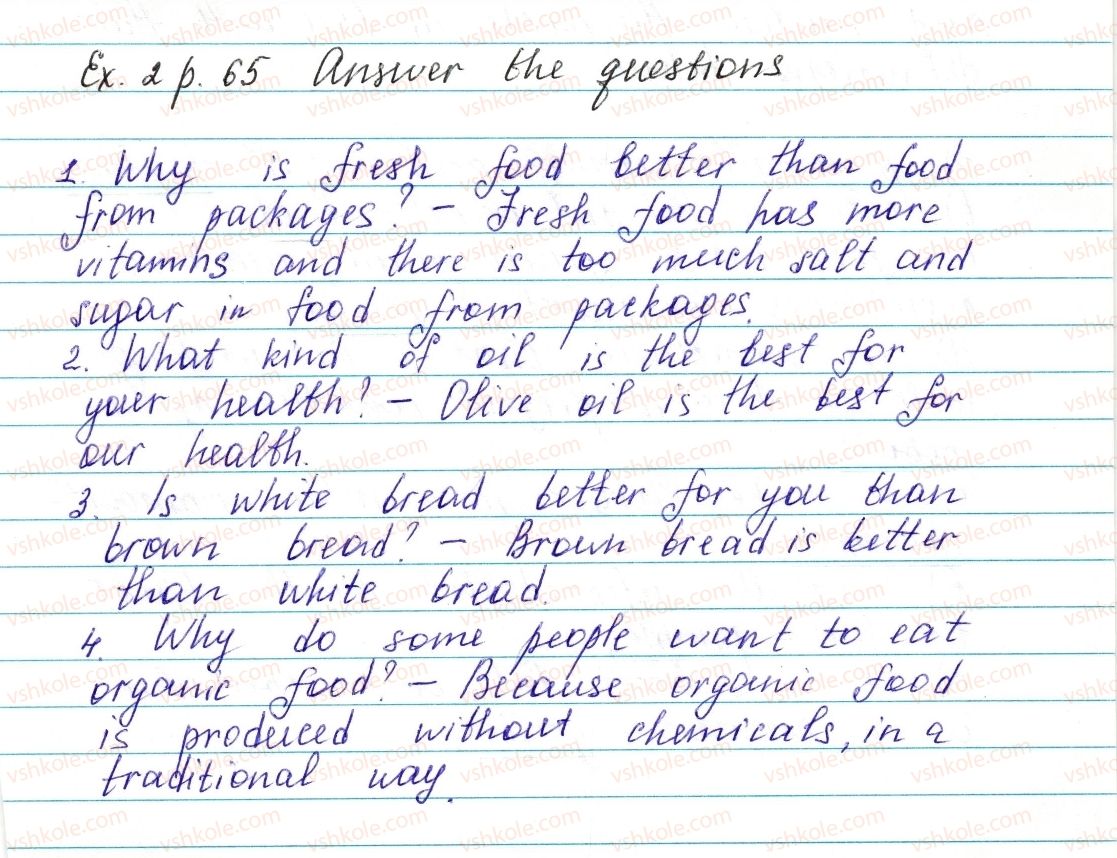 Ex. 2 p. 65 Answer the questions
1. Why is fresh food better than food
from packages? – Fresh food has more
vitamins and there is too much salt and
sugar in food from packages.
2. What kind of oil is the best for
your health? – Olive oil is the best for
our health.
3. Is white bread better for you than
brown bread? – Brown bread is better
than white bread.
4. Why do some people want to eat
organic food? – Because organic food
is produced without chemicals, in a
traditional way.
vshkole.com